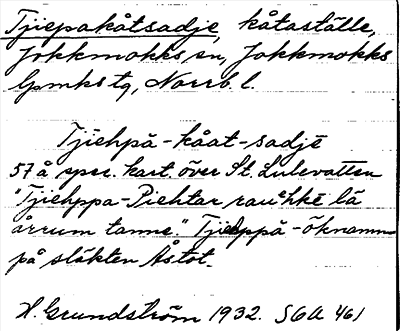 Tjiepakåtsadje, kåtaställe,
Jokkmokks sn, Jokkmokks
lpmks tg, Norrb. l.
Tjiehpā-kåat-sadjē
57 å spec. kart. över St. Lulevatten
"Tjiehppa-Piehtar rauehkē lä
årrum tanne." Tjiehppā-öknamn
på släkten Åstot.
H. Grundström 1932. SOA 461